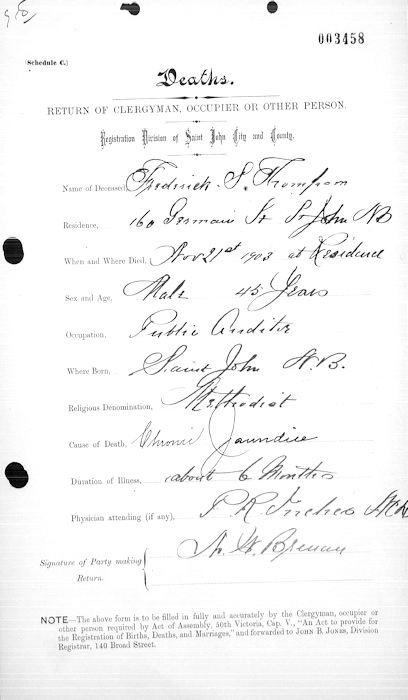 98
003458
(Schedule C.)
Deaths.
RETURN OF CLERGYMAN, OCCUPIER OR OTHER PERSON.
Registration Division of Saint John City and County.
Name of Deceased, Frederick S. Thompson
Residence, 160 Germain St St John NB
When and Where Died, Nov 21st 1903 at Residence
Sex and Age, Male 45 Years
Occupation, Public Auditor
Where Born, Saint John N.B.
Religious Denomination, Methodist
Cause of Death, Chronic Jaundice
Duration of Illness, about 6 Months
Physician attending (if any), P. R. Inches
Signature of Party making Return. Brenan
NOTE—The above form is to be filled in fully and accurately by the Clergyman, occupier or
other person required by Act of Assembly, 50th Victoria, Cap. V., "An Act to provide for
the Registration of Births, Deaths, and Marriages," and forwarded to JOHN B. JONES, Division
Registrar, 140 Broad Street.